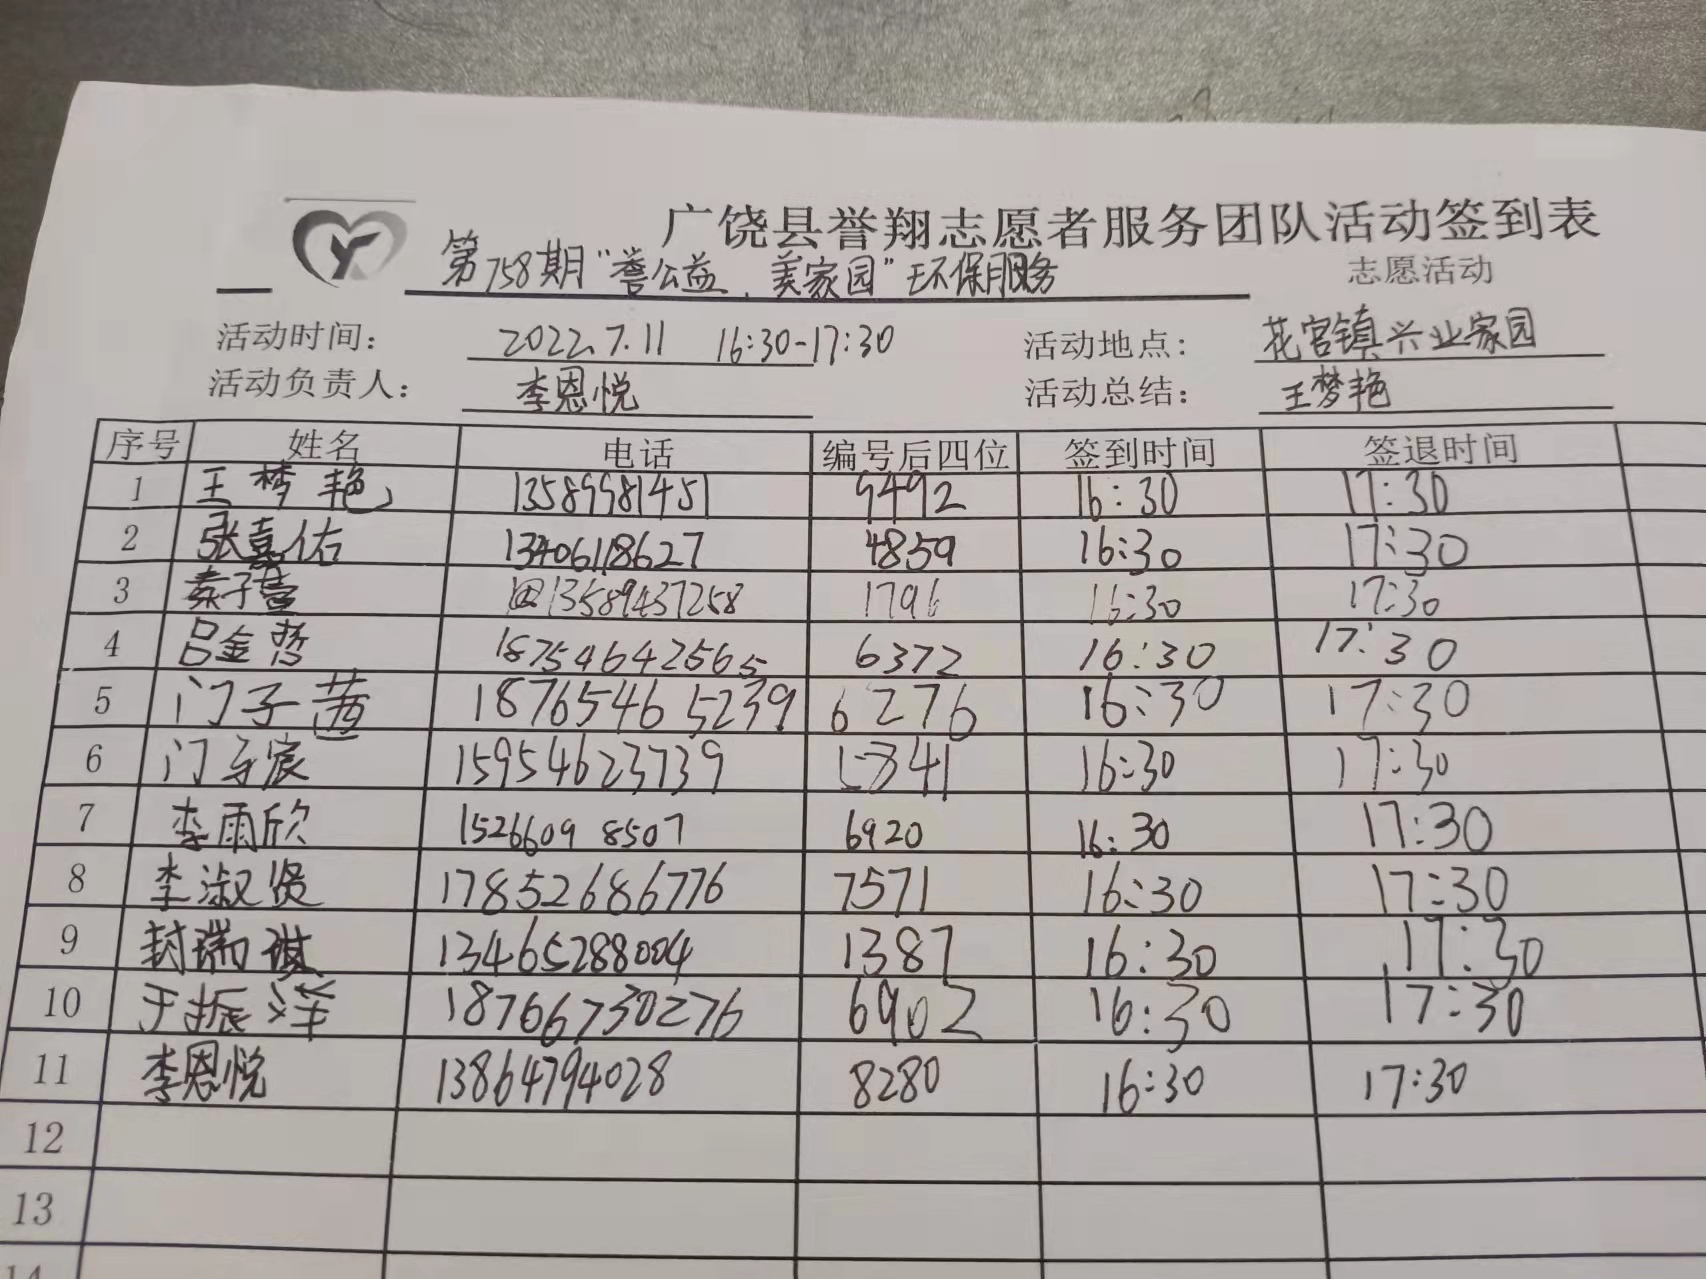 广饶县誉翔志愿者服务团队活动签到表
第758期“誉公益，美家园”环保服务 志愿活动
活动时间： 2022.7.11 16:30-17:30 活动地点： 花官镇兴业家园
活动负责人： 李恩悦 活动总结： 王梦艳
序号 姓名 电话 编号后四位 签到时间 签退时间
1 王梦艳 13589981451 9492 16:30 17:30
2 张嘉佑 13406118627 4859 16:30 17:30
3 秦子萱 13589437258 1796 16:30 17:30
4 吕金哲 18754642565 6372 16:30 17:30
5 门子茜 18765465239 6276 16:30 17:30
6 门子宸 15954623739 16:30 17:30
7 李雨欣 15266098507 6920 16:30 17:30
8 李淑贤 17852686776 7571 16:30 17:30
9 封瑞琪 13465288004 1387 16:30 17:30
10 于振洋 18766730276 6902 16:30 17:30
11 李恩悦 13864794028 8280 16:30 17:30
12
13
14